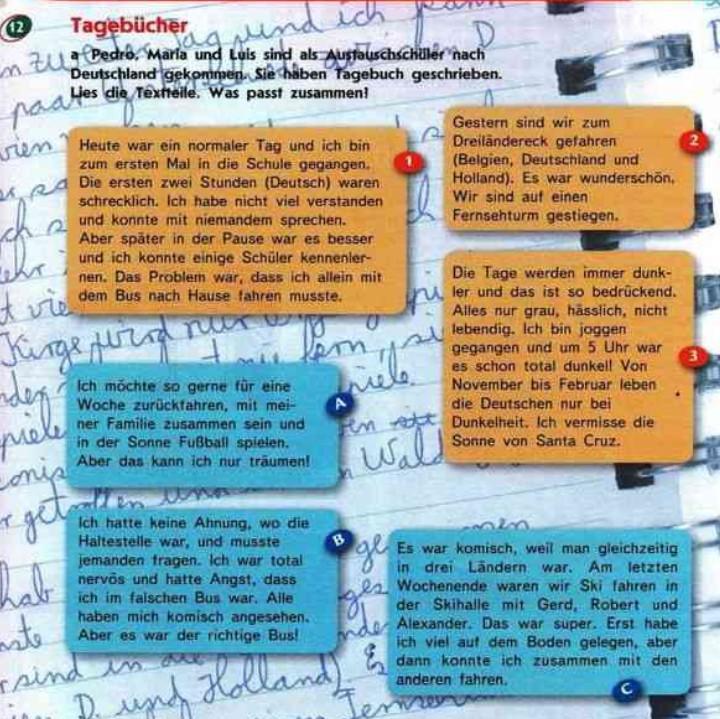 12
Tagebücher
a Pedro, Maria und Luis sind als Austauschschüler nach
Deutschland gekommen. Sie haben Tagebuch geschrieben.
Lies die Textteile. Was passt zusammen!
Heute war ein normaler Tag und ich bin
zum ersten Mal in die Schule gegangen.
Die ersten zwei Stunden (Deutsch) waren
schrecklich. Ich habe nicht viel verstanden
und konnte mit niemandem sprechen.
Aber später in der Pause war es besser
und ich konnte einige Schüler kennenler-
nen. Das Problem war, dass ich allein mit
dem Bus nach Hause fahren musste.
1
Gestern sind wir zum
Dreiländereck gefahren
(Belgien, Deutschland und
Holland). Es war wunderschön.
Wir sind auf einen
Fernsehturm gestiegen.
2
Die Tage werden immer dunk-
ler und das ist so bedrückend.
Alles nur grau, hässlich, nicht
lebendig. Ich bin joggen
gegangen und um 5 Uhr war
es schon total dunkel! Von
November bis Februar leben
die Deutschen nur bei
Dunkelheit. Ich vermisse die
Sonne von Santa Cruz.
3
Ich möchte so gerne für eine
Woche zurückfahren, mit mei-
ner Familie zusammen sein und
in der Sonne Fußball spielen.
Aber das kann ich nur träumen!
A
Ich hatte keine Ahnung, wo die
Haltestelle war, und musste
jemanden fragen. Ich war total
nervös und hatte Angst, dass
ich im falschen Bus war. Alle
haben mich komisch angesehen.
Aber es war der richtige Bus!
B
Es war komisch, weil man gleichzeitig
in drei Ländern war. Am letzten
Wochenende waren wir Ski fahren in
der Skihalle mit Gerd, Robert und
Alexander. Das war super. Erst habe
ich viel auf dem Boden gelegen, aber
dann konnte ich zusammen mit den
anderen fahren.
C